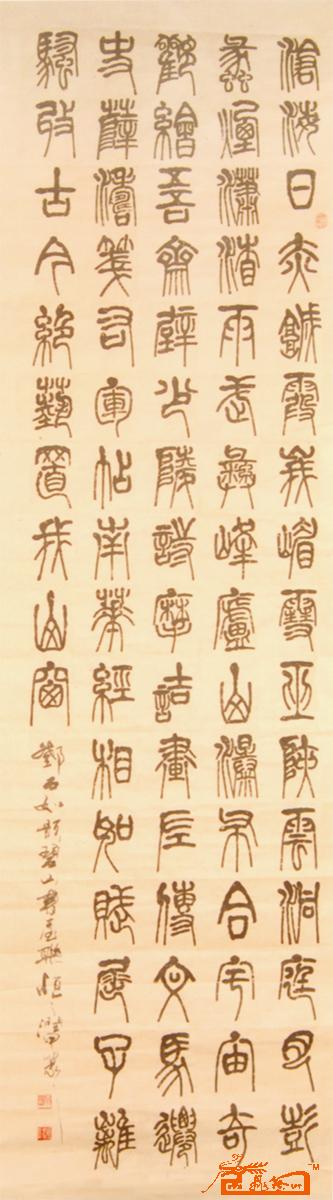 滄海日赤城霞峩嵋雪巫陝雲洞庭月彭
蠡煙瀟湘雨武彝峰廬山瀑布合宇宙奇
觀繪吾齋壁少陵詩摩詰畫左傳文馬遷
史薛濤箋右軍帖南華經相如賦屈子離
騷收古今絕藝置我山窗
鄧石如題碧山書屋聯